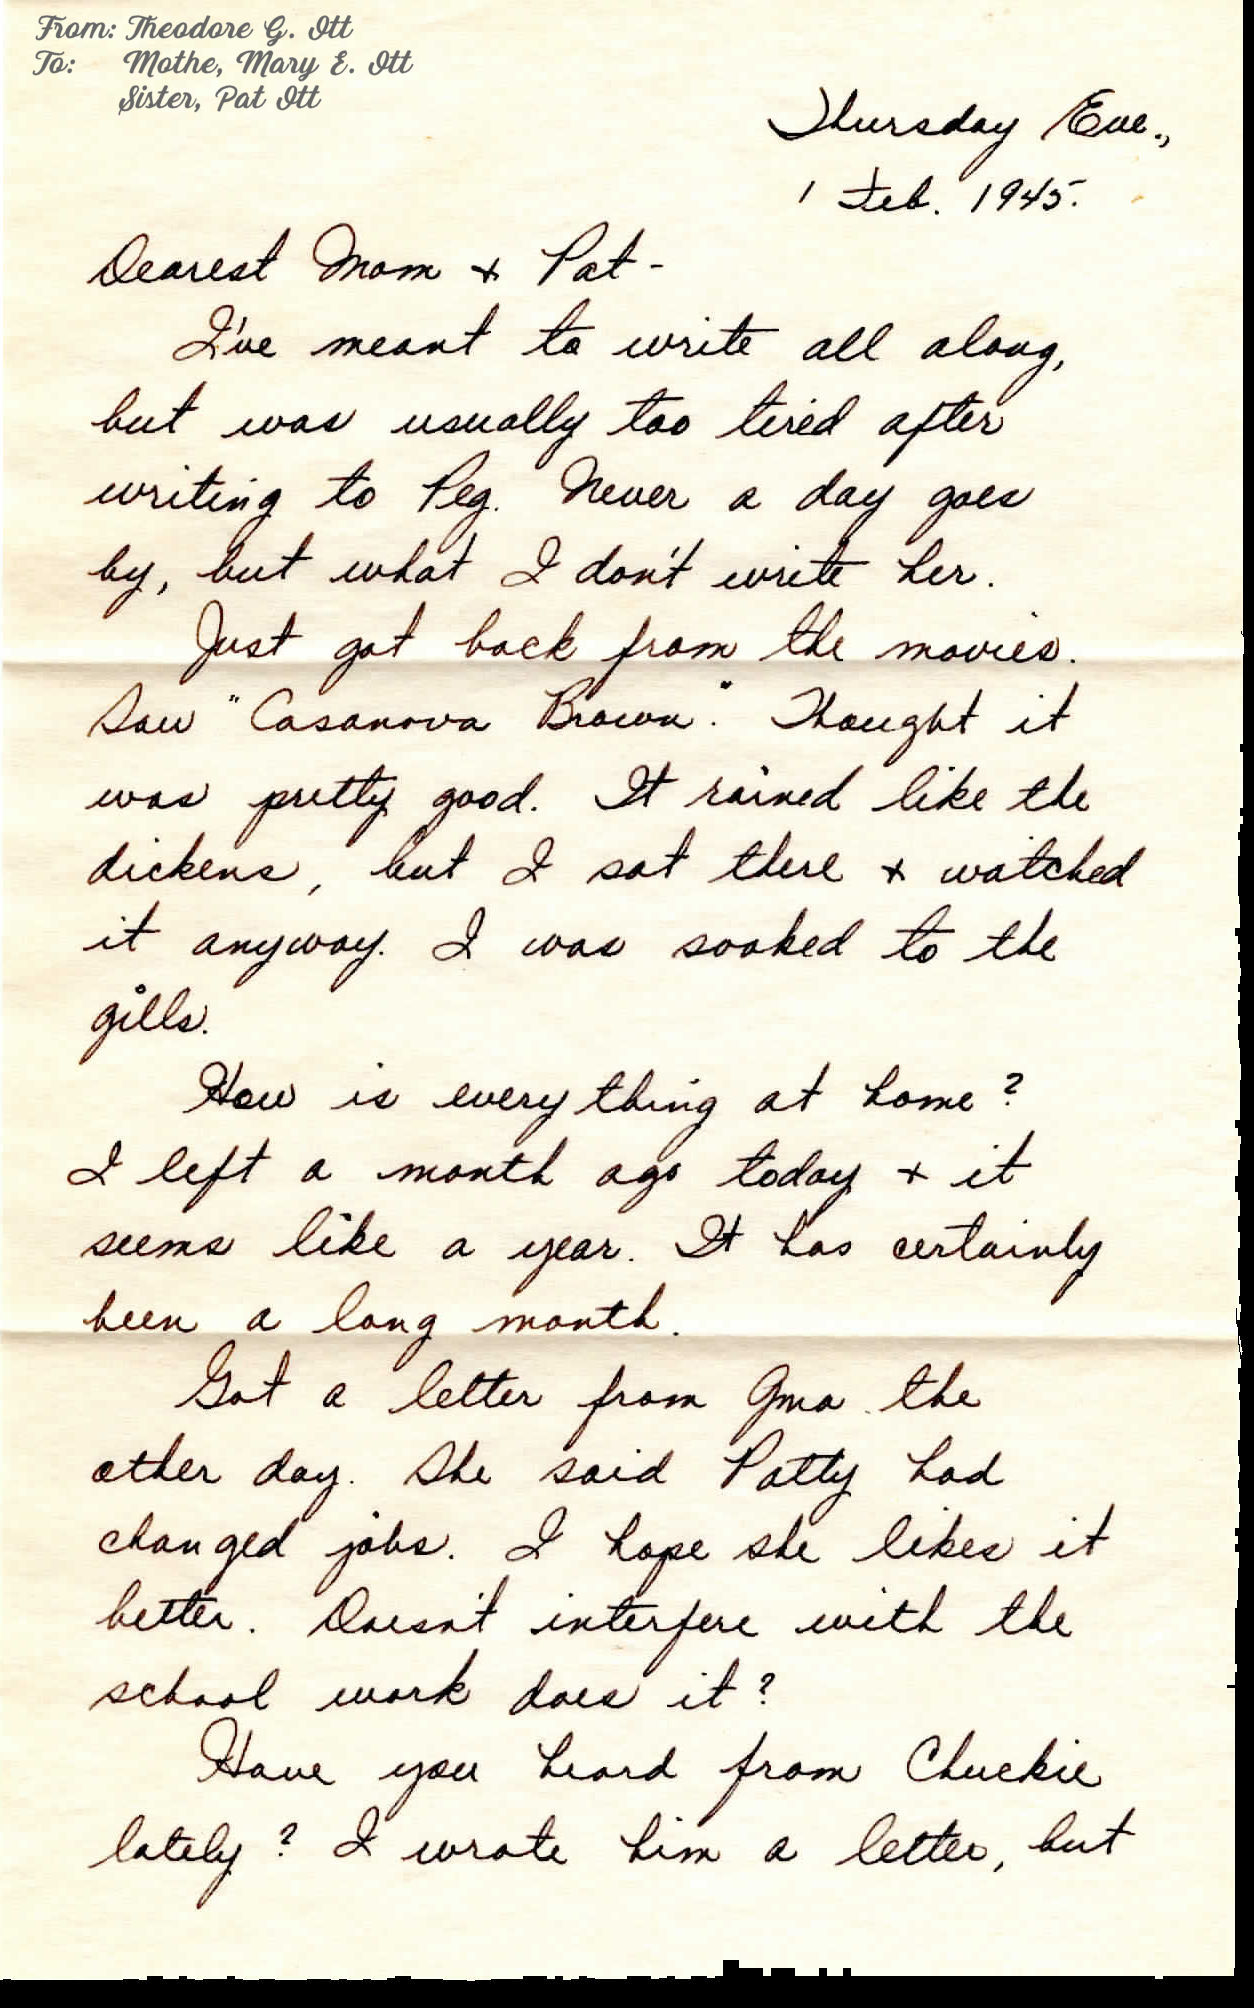 From: Theodore G. Ott
To: Mothe, Mary E. Ott
Sister, Pat Ott
Thursday Eve.,
1 Feb. 1945.
Dearest Mom + Pat-
I've meant to write all along,
but was usually too tired after
writing to Peg. Never a day goes
by, but what I don't write her.
Just got back from the movies.
Saw "Casanova Brown". Thought it
was pretty good. It rained like the
dickens, but I sat there + watched
it anyway. I was soaked to the
gills.
How is everything at home?
I left a month ago today + it
seems like a year. It has certainly
been a long month.
Got a letter from Gma the
other day. She said Patty had
changed jobs. I hope she likes it
better. Doesn't interfere with the
school work does it?
Have you heard from Chuckie
lately? I wrote him a letter, but